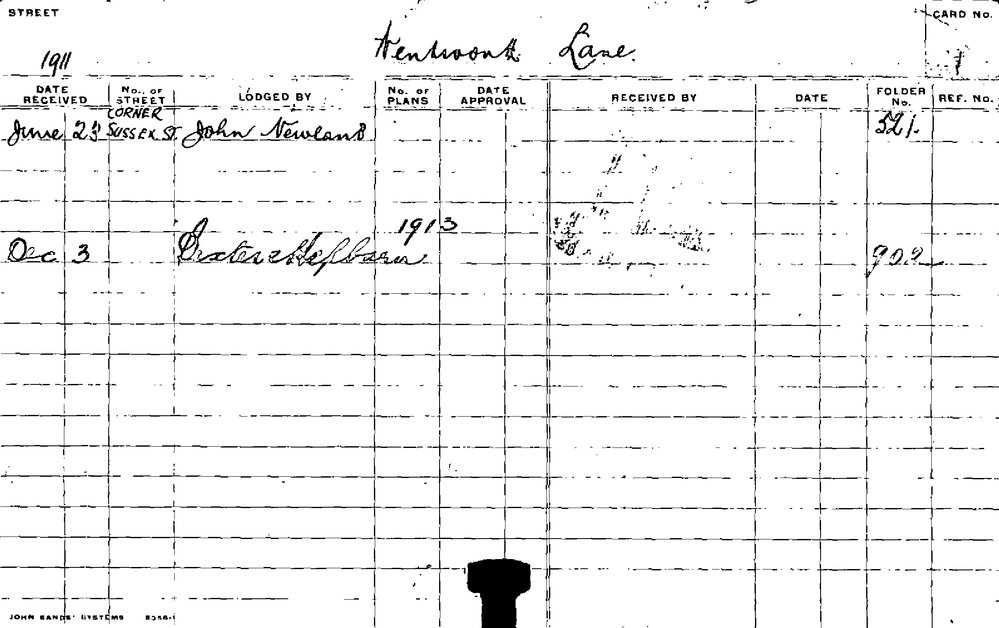 STREET
Wentworth Lane.
CARD No.
1
1911
DATE RECEIVED
No. OF STREET
LODGED BY
No. OF PLANS
DATE APPROVAL
RECEIVED BY
DATE
FOLDER No.
REF. No.
CORNER
June 23 SUSSEX ST. John Newland 521.
1913
Dec 3 902
JOHN SANDS' SYSTEMS